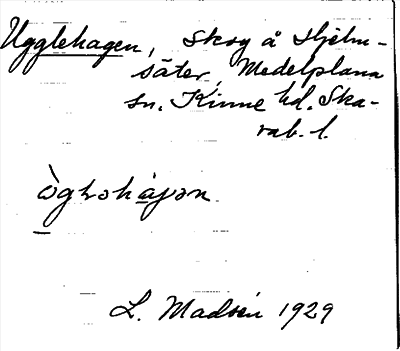 Ugglehagen, skog å Hjelm-
säter, Medelplana
sn. Kinne hd. Ska-
rab. l.
L. Madsén 1929